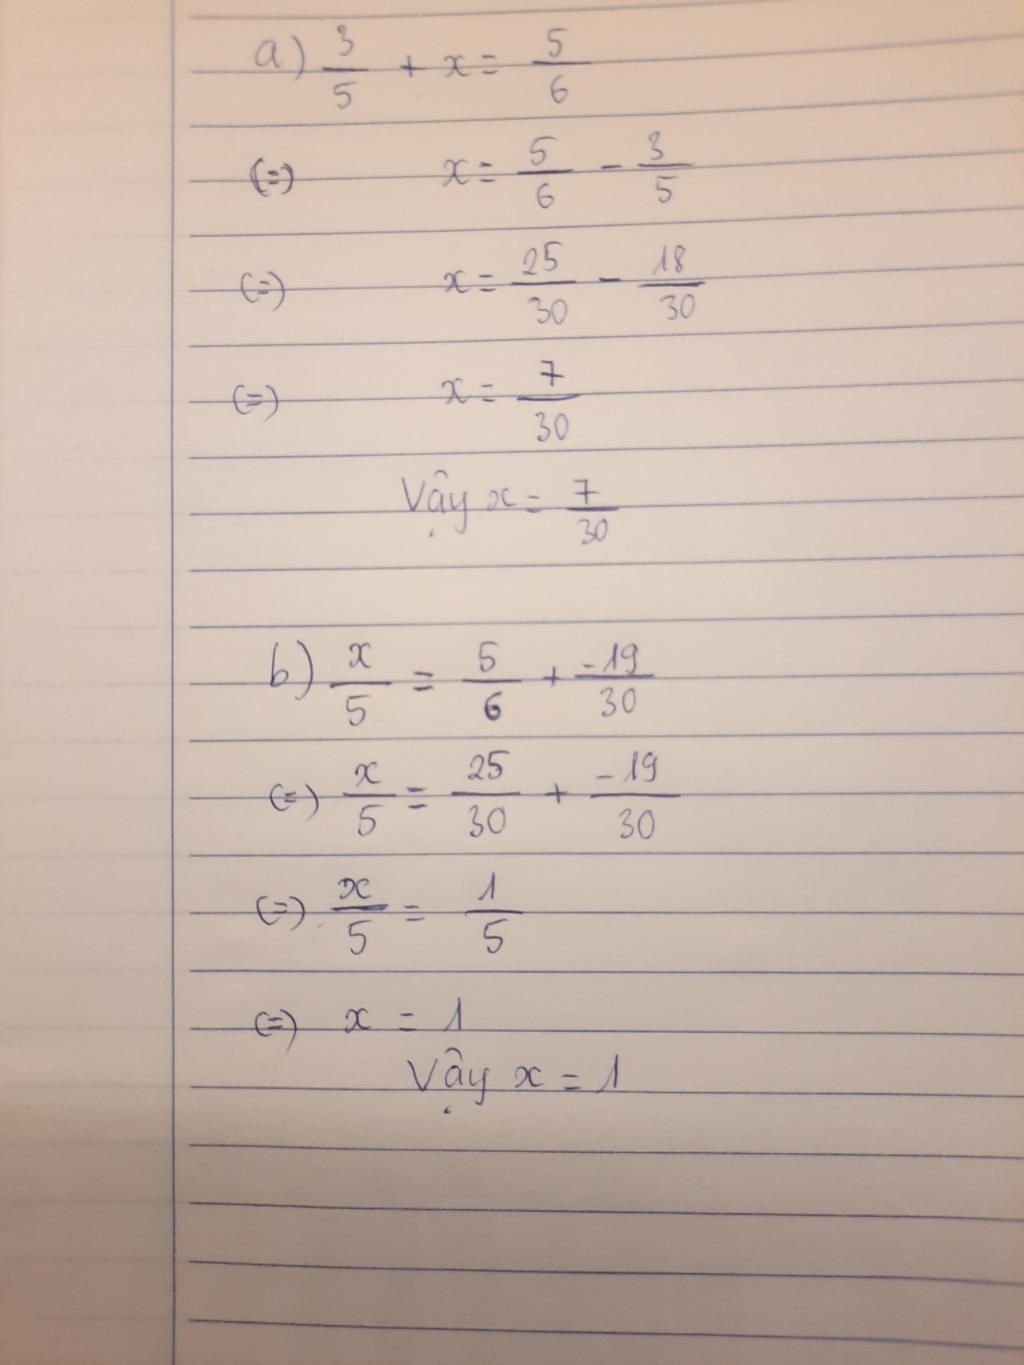 a) 3/5 + x = 5/6
(=) x = 5/6 - 3/5
(=) x = 25/30 - 18/30
(=) x = 7/30
Vậy x = 7/30
b) x/5 = 5/6 + -19/30
(=) x/5 = 25/30 + -19/30
(=) x/5 = 1/5
(=) x = 1
Vậy x = 1